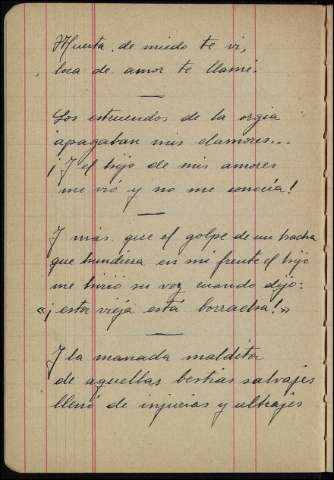 Muerta de miedo te vi,
loca de amor te llamé.
Los estruendos de la orgia
apagaban mis clamores...
¡Y el hijo de mis amores
me vió y no me conocía!
Y más que el golpe de un hacha
que hundiera en mi frente el hijo
me hirió su voz cuando dijo:
«¡esta vieja está borracha!»
Y la manada maldita
de aquellas bestias salvajes
llenó de injurias y ultrajes